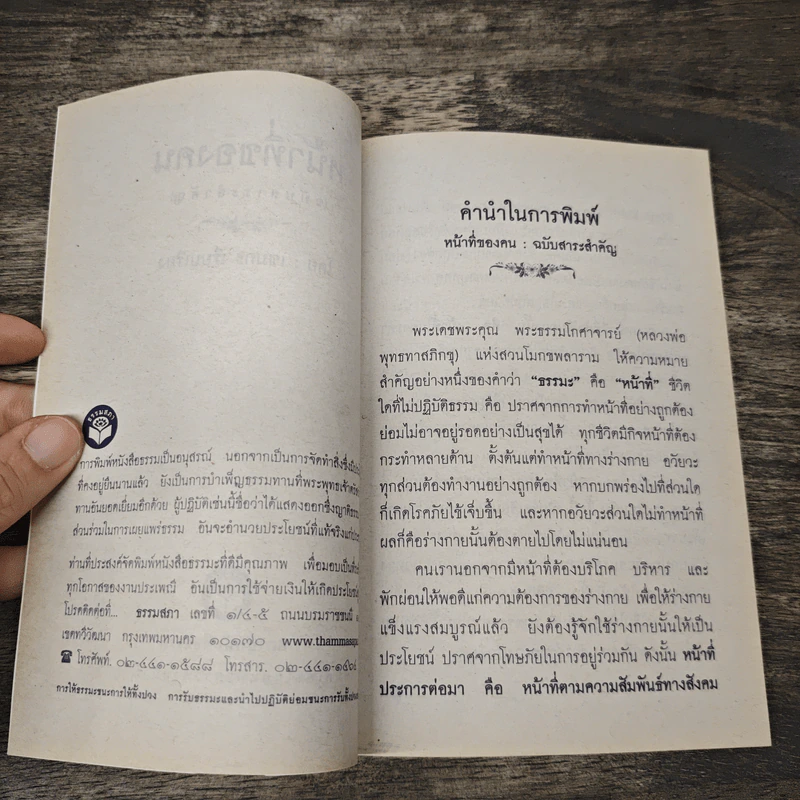 ธรรมสภา
การพิมพ์หนังสือธรรมเป็นอนุสรณ์ นอกจากเป็นการจัดทำสิ่งซึ่ง
ที่คงอยู่ยืนนานแล้ว ยังเป็นการบำเพ็ญธรรมทานที่พระพุทธเจ้า
ทานอันยอดเยี่ยมอีกด้วย ผู้ปฏิบัติเช่นนี้ชื่อว่าได้แสดงออกซึ่ง
ส่วนร่วมในการเผยแพร่ธรรม อันจะอำนวยประโยชน์ที่แท้จริงแก่
ท่านที่ประสงค์จัดพิมพ์หนังสือธรรมะที่ดีมีคุณภาพ เพื่อมอบเป็น
ทุกโอกาสของงานประเพณี อันเป็นการใช้จ่ายเงินให้เกิดประโยชน์
โปรดติดต่อที่... ธรรมสภา เลขที่ ๑/๔-๕ ถนนบรมราชชนนี
เขตทวีวัฒนา กรุงเทพมหานคร ๑๐๑๗๐ www.thammasapa
โทรศัพท์. ๐๒-๔๔๑-๑๕๘๘ โทรสาร. ๐๒-๔๔๑-๑๔๖๔
การให้ธรรมะชนะการให้ทั้งปวง การรับธรรมะและนำไปปฏิบัติย่อมชนะการรับทั้งปวง
คำนำในการพิมพ์
หน้าที่ของคน : ฉบับสาระสำคัญ
พระเดชพระคุณ พระธรรมโกศาจารย์ (หลวงพ่อ
พุทธทาสภิกขุ) แห่งสวนโมกขพลาราม ให้ความหมาย
สำคัญอย่างหนึ่งของคำว่า “ธรรมะ” คือ “หน้าที่” ชีวิต
ใดที่ไม่ปฏิบัติธรรม คือ ปราศจากการทำหน้าที่อย่างถูกต้อง
ย่อมไม่อาจอยู่รอดอย่างเป็นสุขได้ ทุกชีวิตมีกิจหน้าที่ต้อง
กระทำหลายด้าน ตั้งต้นแต่ทำหน้าที่ทางร่างกาย อวัยวะ
ทุกส่วนต้องทำงานอย่างถูกต้อง หากบกพร่องไปที่ส่วนใด
ก็เกิดโรคภัยไข้เจ็บขึ้น และหากอวัยวะส่วนใดไม่ทำหน้าที่
ผลก็คือร่างกายนั้นต้องตายไปโดยไม่แน่นอน
คนเรานอกจากมีหน้าที่ต้องบริโภค บริหาร และ
พักผ่อนให้พอดีแก่ความต้องการของร่างกาย เพื่อให้ร่างกาย
แข็งแรงสมบูรณ์แล้ว ยังต้องรู้จักใช้ร่างกายนั้นให้เป็น
ประโยชน์ ปราศจากโทษภัยในการอยู่ร่วมกัน ดังนั้น หน้าที่
ประการต่อมา คือ หน้าที่ตามความสัมพันธ์ทางสังคม